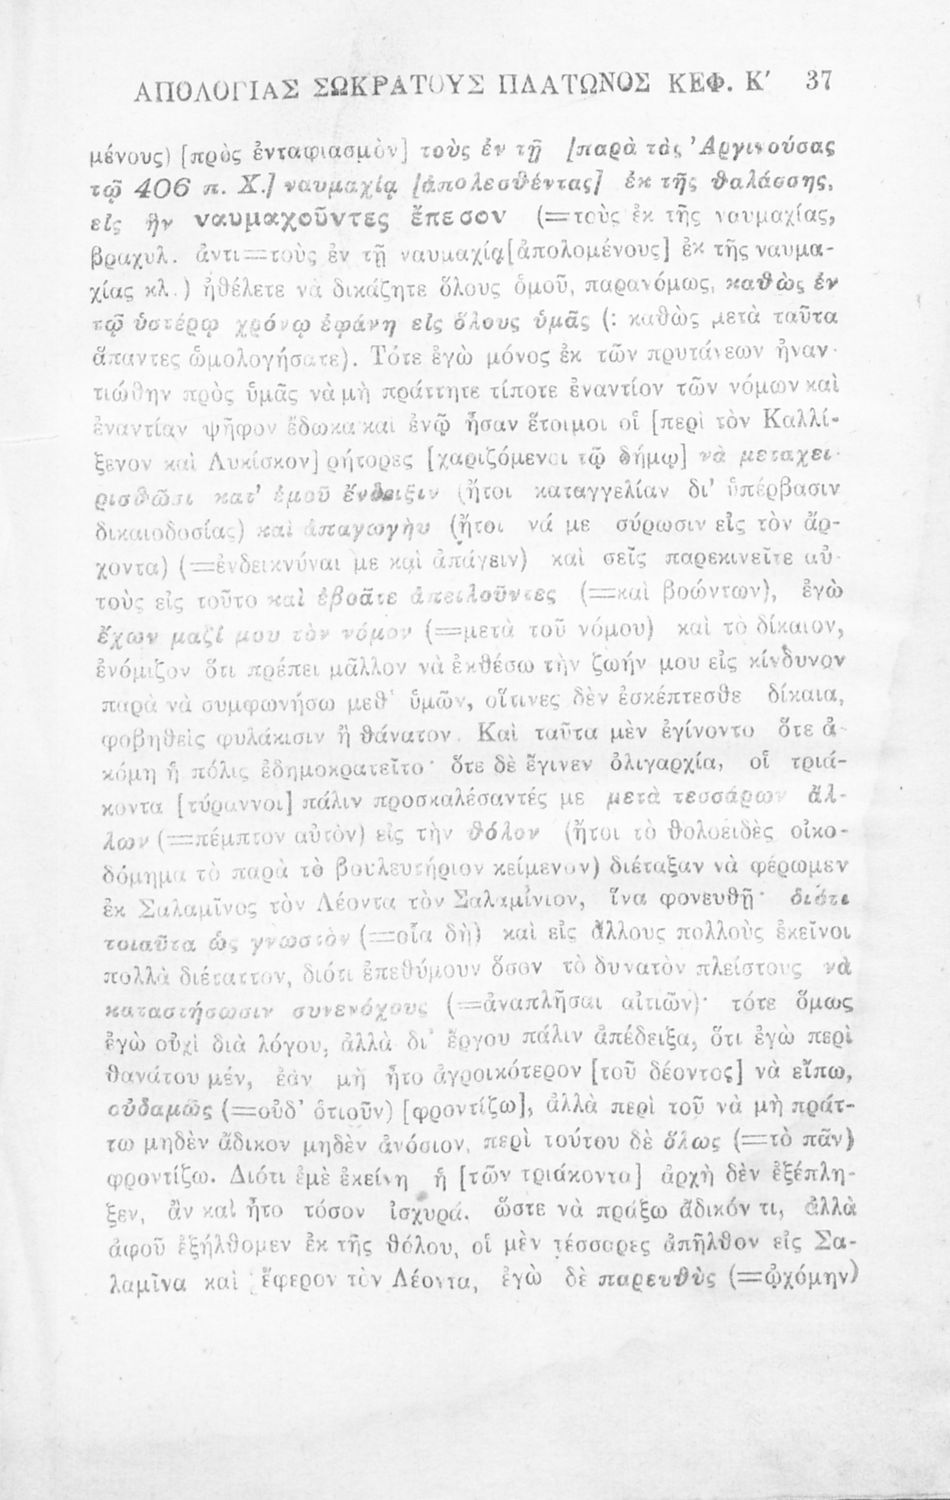 ΑΠΟΛΟΓΙΑΣ ΣΩΚΡΑΤΟΥΣ ΠΛΑΤΩΝΟΣ ΚΕΦ. Κ′ 37
μένους) [πρὸς ἐνταφιασμὸν] τοὺς ἐν τῇ [παρὰ τὰς Ἀργινούσας
τῷ 406 π. Χ.] ναυμαχίᾳ [ἀπολεσθέντας] ἐκ τῆς θαλάσσης,
εἰς ἣν ναυμαχοῦντες ἔπεσον (=τοὺς ἐκ τῆς ναυμαχίας,
βραχυλ. ἀντι=τοὺς ἐν τῇ ναυμαχίᾳ[ἀπολομένους] ἐκ τῆς ναυμα-
χίας κλ.) ἠθέλετε νὰ δικάζητε ὅλους ὁμοῦ, παρανόμως, καθὼς ἐν
τῷ ὑστέρῳ χρόνῳ ἐφάνη εἰς ὅλους ὑμᾶς (: καθὼς μετὰ ταῦτα
ἅπαντες ὡμολογήσατε). Τότε ἐγὼ μόνος ἐκ τῶν πρυτάνεων ἠναν-
τιώθην πρὸς ὑμᾶς νὰ μὴ πράττητε τίποτε ἐναντίον τῶν νόμων καὶ
ἐναντίαν ψῆφον ἔδωκα καὶ ἐνῷ ἦσαν ἕτοιμοι οἱ [περὶ τὸν Καλλί-
ξενον καὶ Λυκίσκον] ρήτορες [χαριζόμενοι τῷ δήμῳ] νὰ μεταχει-
ρισθῶσι κατ’ ἐμοῦ ἔνδειξιν (ἤτοι καταγγελίαν δι’ ὑπέρβασιν
δικαιοδοσίας) καὶ ἀπαγωγὴν (ἤτοι νά με σύρωσιν εἰς τὸν ἄρ-
χοντα) (=ἐνδεικνύναι με καὶ ἀπάγειν) καὶ σεῖς παρεκινεῖτε αὐ-
τοὺς εἰς τοῦτο καὶ ἐβοᾶτε ἀπειλοῦντες (=καὶ βοώντων), ἐγὼ
ἔχων μαζί μου τὸν νόμον (=μετὰ τοῦ νόμου) καὶ τὸ δίκαιον,
ἐνόμιζον ὅτι πρέπει μᾶλλον νὰ ἐκθέσω τὴν ζωήν μου εἰς κίνδυνον
παρὰ νὰ συμφωνήσω μεθ’ ὑμῶν, οἵτινες δὲν ἐσκέπτεσθε δίκαια,
φοβηθεὶς φυλάκισιν ἢ θάνατον. Καὶ ταῦτα μὲν ἐγίνοντο ὅτε ἀ-
κόμη ἡ πόλις ἐδημοκρατεῖτο· ὅτε δὲ ἔγινεν ὀλιγαρχία, οἱ τριά-
κοντα [τύραννοι] πάλιν προσκαλέσαντές με μετὰ τεσσάρων ἄλ-
λων (=πέμπτον αὐτὸν) εἰς τὴν θόλον (ἤτοι τὸ θολοειδὲς οἰκο-
δόμημα τὸ παρὰ τὸ βουλευτήριον κείμενον) διέταξαν νὰ φέρωμεν
ἐκ Σαλαμῖνος τὸν Λέοντα τὸν Σαλαμίνιον, ἵνα φονευθῇ· διότι
τοιαῦτα ὡς γνωστὸν (=οἷα δὴ) καὶ εἰς ἄλλους πολλοὺς ἐκεῖνοι
πολλὰ διέταττον, διότι ἐπεθύμουν ὅσον τὸ δυνατὸν πλείστους νὰ
καταστήσωσιν συνενόχους (=ἀναπλῆσαι αἰτιῶν)· τότε ὅμως
ἐγὼ οὐχὶ διὰ λόγου, ἀλλὰ δι’ ἔργου πάλιν ἀπέδειξα, ὅτι ἐγὼ περὶ
θανάτου μέν, ἐὰν μὴ ἦτο ἀγροικότερον [τοῦ δέοντος] νὰ εἴπω,
οὐδαμῶς (=οὐδ’ ὁτιοῦν) [φροντίζω], ἀλλὰ περὶ τοῦ νὰ μὴ πράτ-
τω μηδὲν ἄδικον μηδὲν ἀνόσιον, περὶ τούτου δὲ ὅλως (=τὸ πᾶν)
φροντίζω. Διότι ἐμὲ ἐκείνη ἡ [τῶν τριάκοντα] ἀρχὴ δὲν ἐξέπλη-
ξεν, ἂν καὶ ἦτο τόσον ἰσχυρά. ὥστε νὰ πράξω ἄδικόν τι, ἀλλὰ
ἀφοῦ ἐξήλθομεν ἐκ τῆς θόλου, οἱ μὲν τέσσαρες ἀπῆλθον εἰς Σα-
λαμῖνα καὶ ἔφερον τὸν Λέοντα, ἐγὼ δὲ παρευθὺς (=ᾠχόμην)